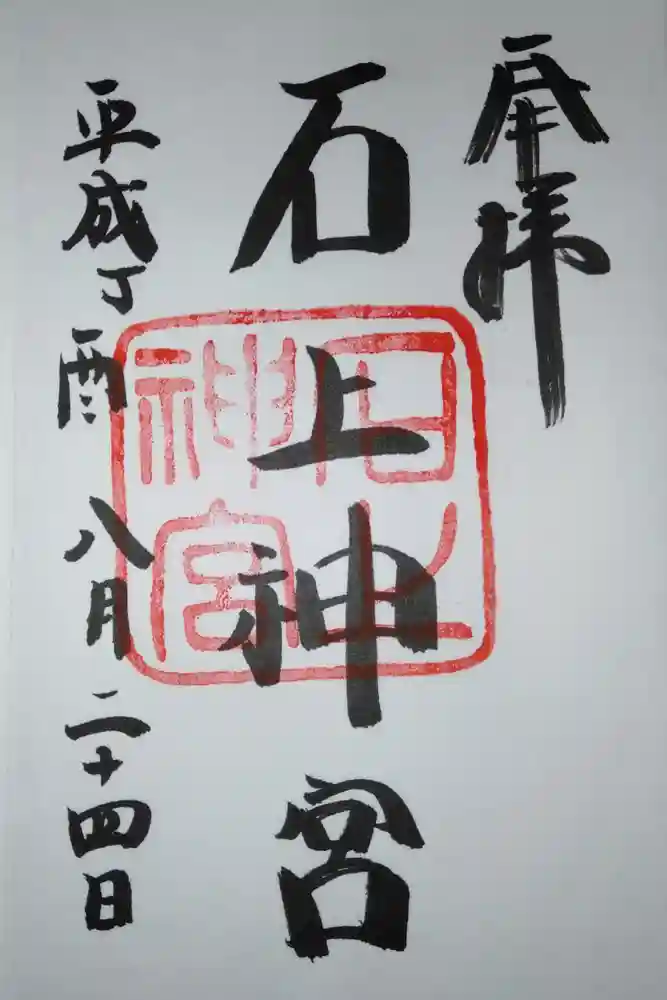 奉拝
石上神宮
石上神宮
平成丁酉 八月 二十四日